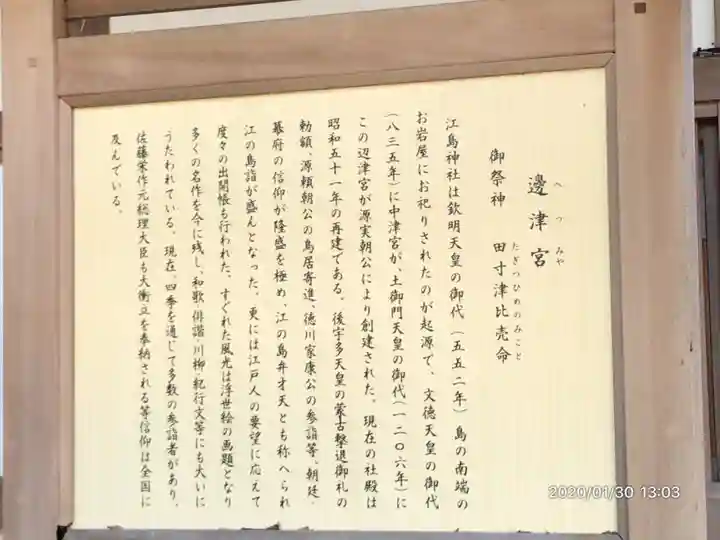 邊津宮
へつみや
御祭神 田寸津比売命
たぎつひめのみこと
江島神社は欽明天皇の御代(五五二年)島の南端の
お岩屋にお祀りされたのが起源で、文徳天皇の御代
(八三五年)に中津宮が、土御門天皇の御代(一二〇六年)に
この辺津宮が源実朝公により創建された。現在の社殿は
昭和五十一年の再建である。後宇多天皇の蒙古撃退御札の
勅額、源頼朝公の鳥居寄進、徳川家康公の参詣等、朝廷、
幕府の信仰が隆盛を極め、江の島弁才天とも称へられ
江の島詣が盛んとなった。更には江戸人の要望に応えて
度々の出開帳も行われた。すぐれた風光は浮世絵の画題となり
多くの名作を今に残し、和歌・俳諧・川柳・紀行文等にも大いに
うたわれている。現在、四季を通じて多数の参詣者があり、
佐藤栄作元総理大臣も大衝立を奉納される等信仰は全国に
及んでいる。
2020/01/30 13:03